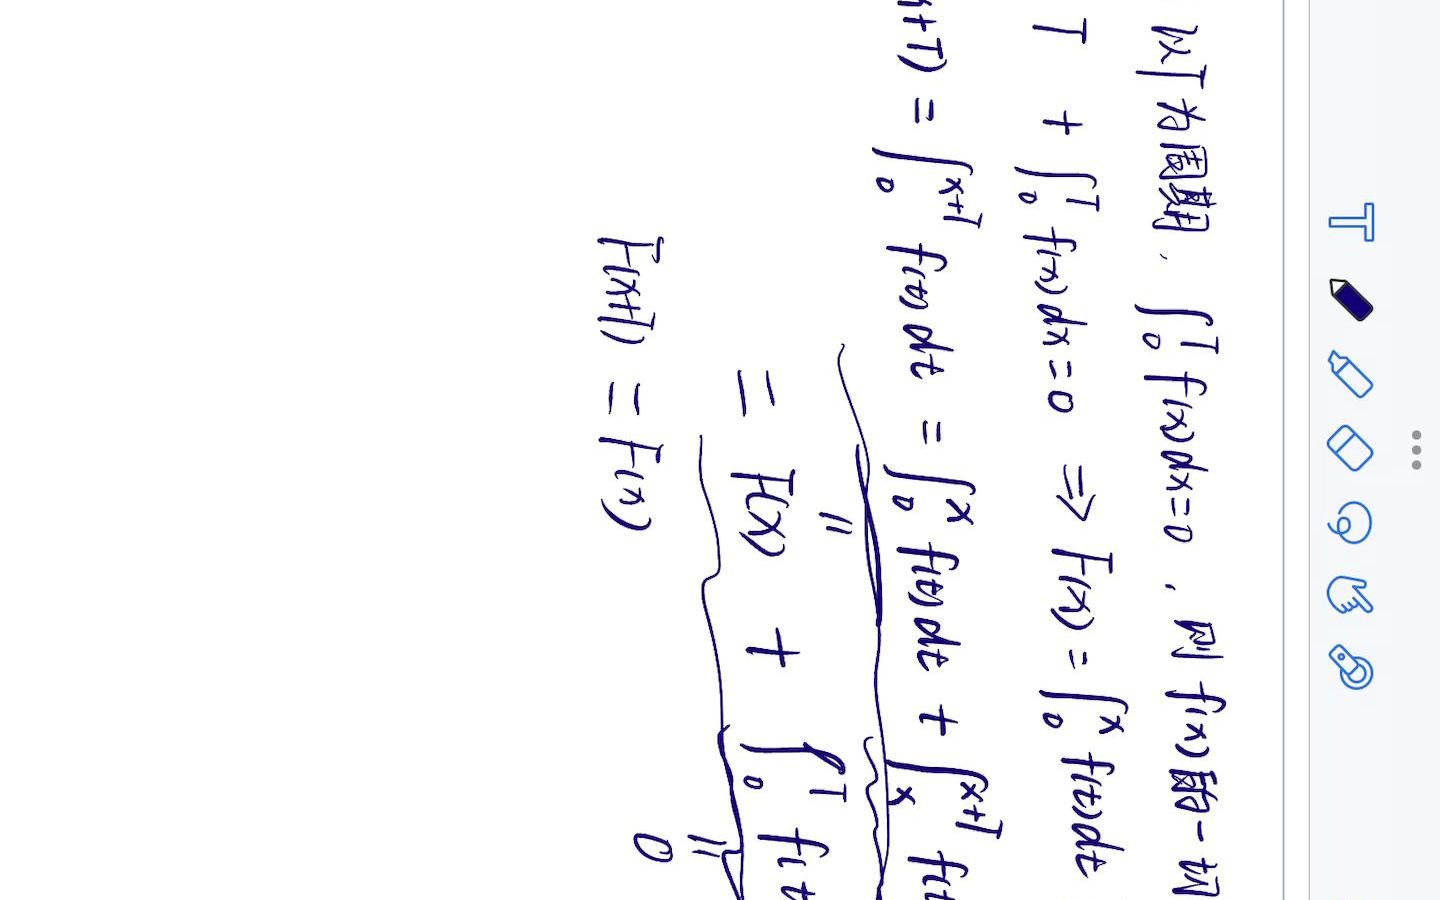 以T为周期, ∫₀ᵀ f(x)dx=0, 则 f(x)的一切
T + ∫₀ᵀ f(x)dx=0 ⇒ F(x) = ∫₀ˣ f(t)dt
x+T) = ∫₀ˣ⁺ᵀ f(t)dt = ∫₀ˣ f(t)dt + ∫ₓˣ⁺ᵀ f(t
||
= F(x) + ∫₀ᵀ f(t
||
0
F(x+T) = F(x)
T